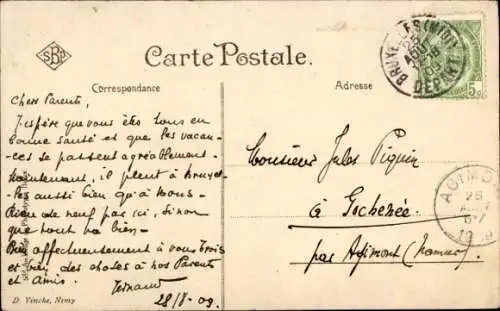 SBP
Carte Postale.
Correspondance
Adresse
BRUXELLES (MIDI)
DEPART
5
Chers Parents,
J'espère que vous êtes tous en
bonne santé et que les vacan-
ces se passent agréablement.
Maintenant, il pleut à Bruxel-
les aussi bien qu'à Mons.
Rien de neuf par ici, sinon
que tout va bien.
Bien affectueusement à vous trois
et bien des choses à nos Parents
et Amis.
Fernand
28/8-09.
Monsieur Jules Piquin
à Gochenée.
par Agimont (Namur)
AGIMONT
D. Vinche, Nimy